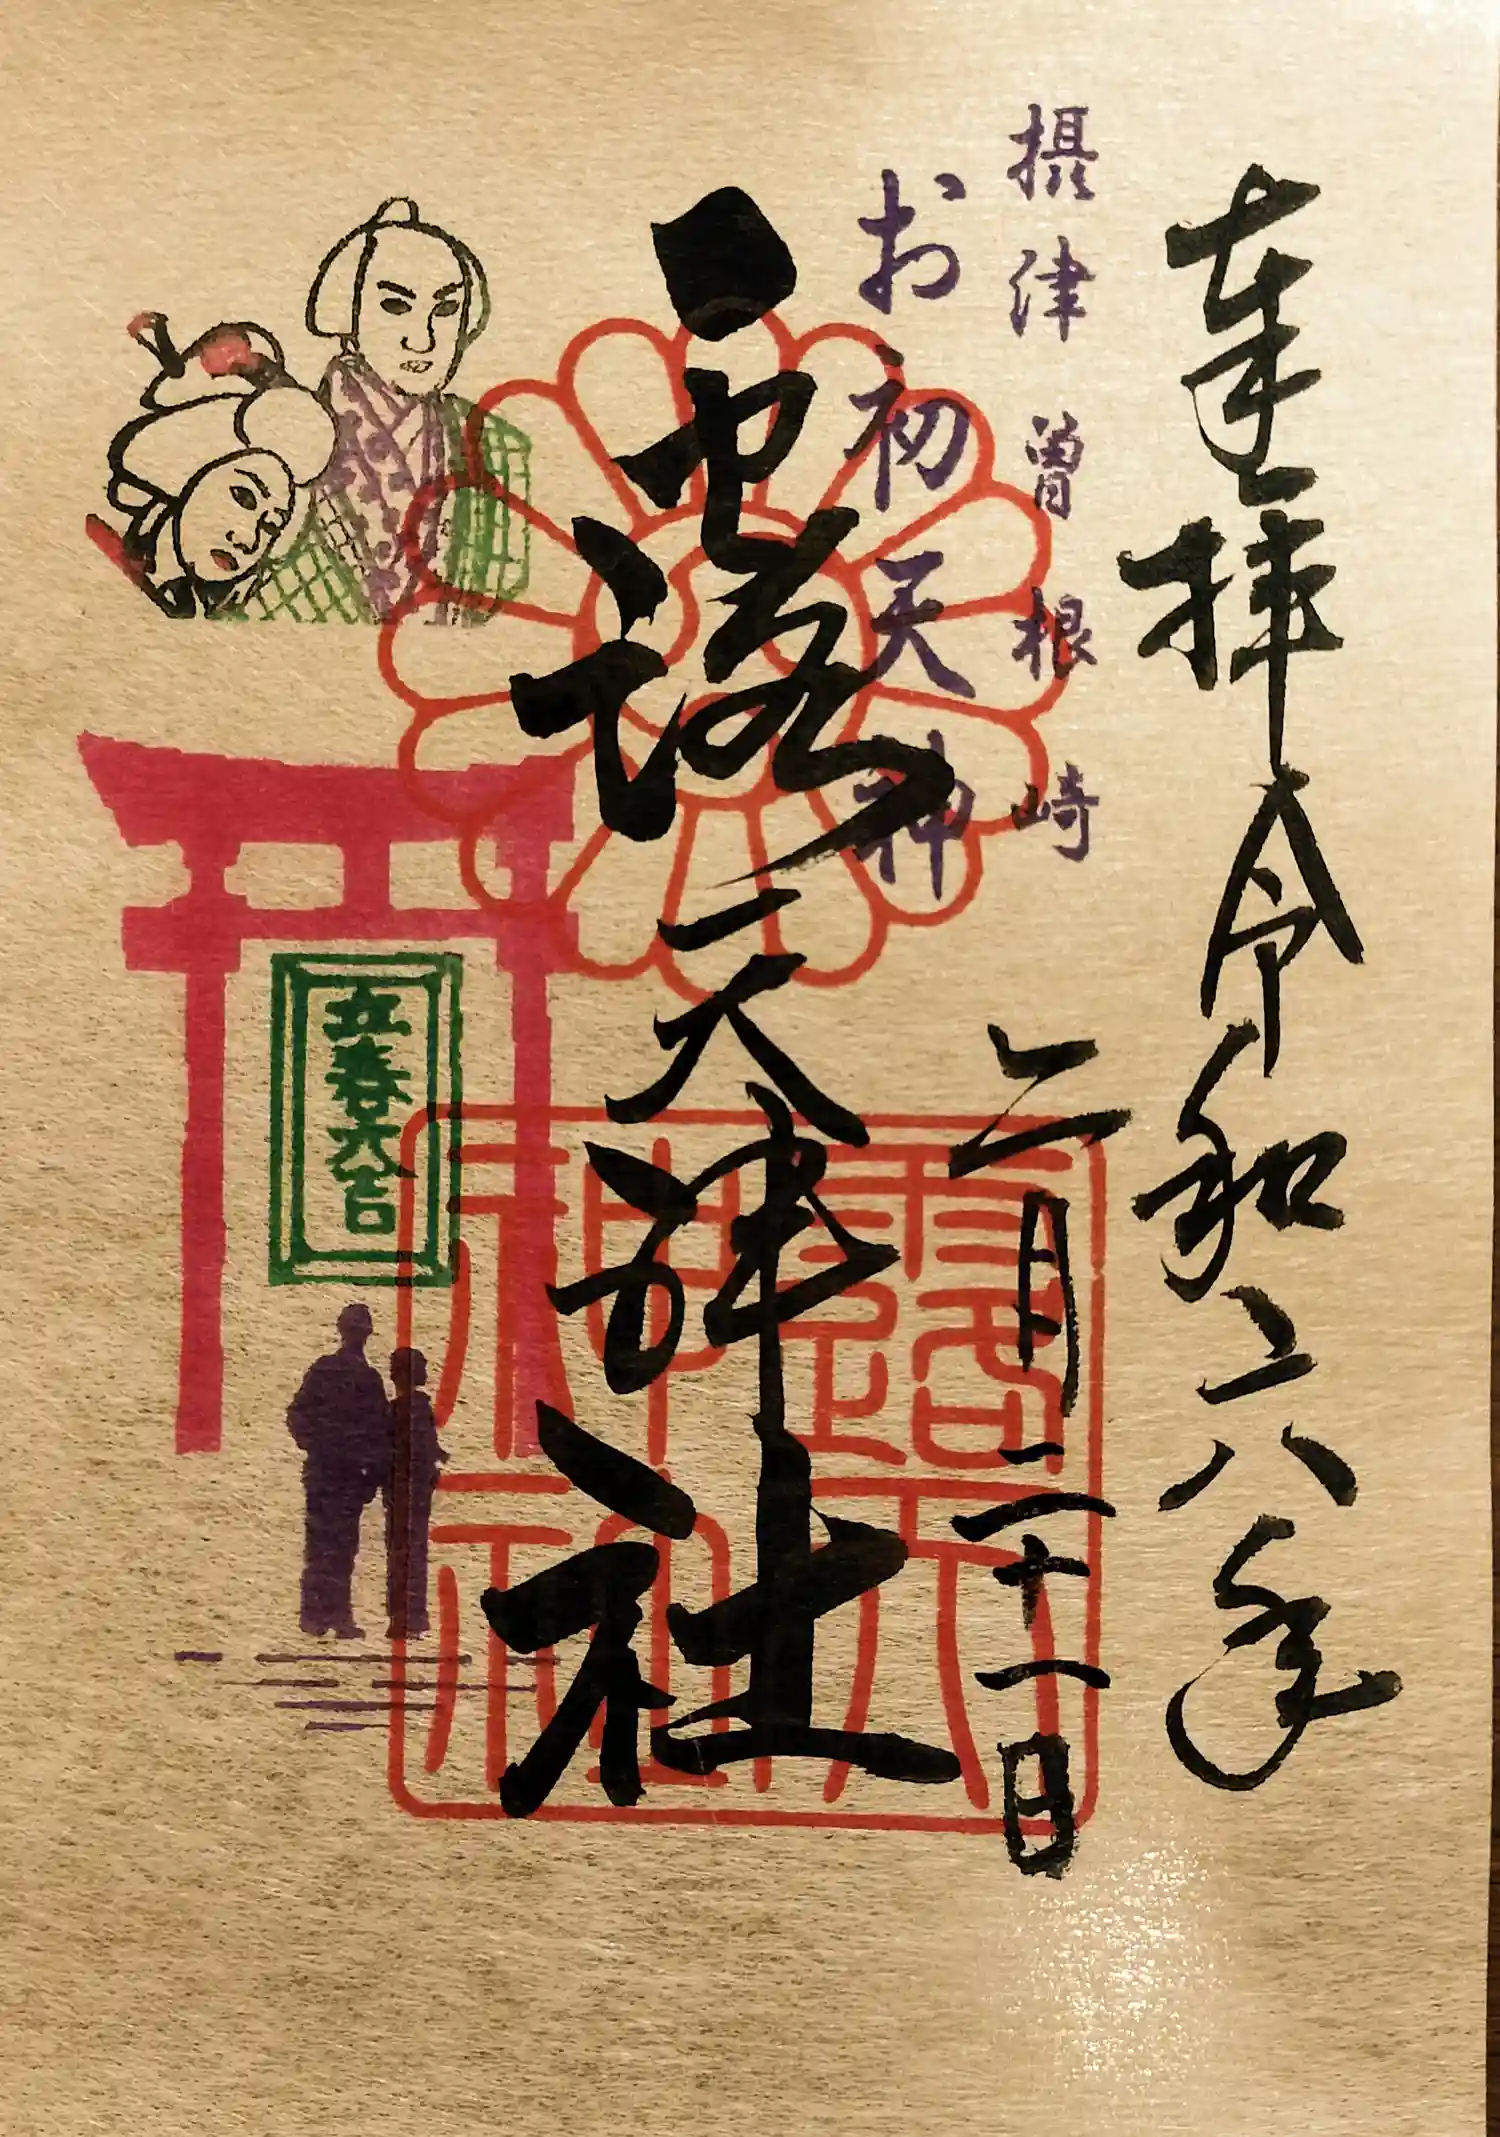 奉拝 令和六年
二月二十一日
摂津曽根崎
お初天神
露天神社
露天神社
立春大吉